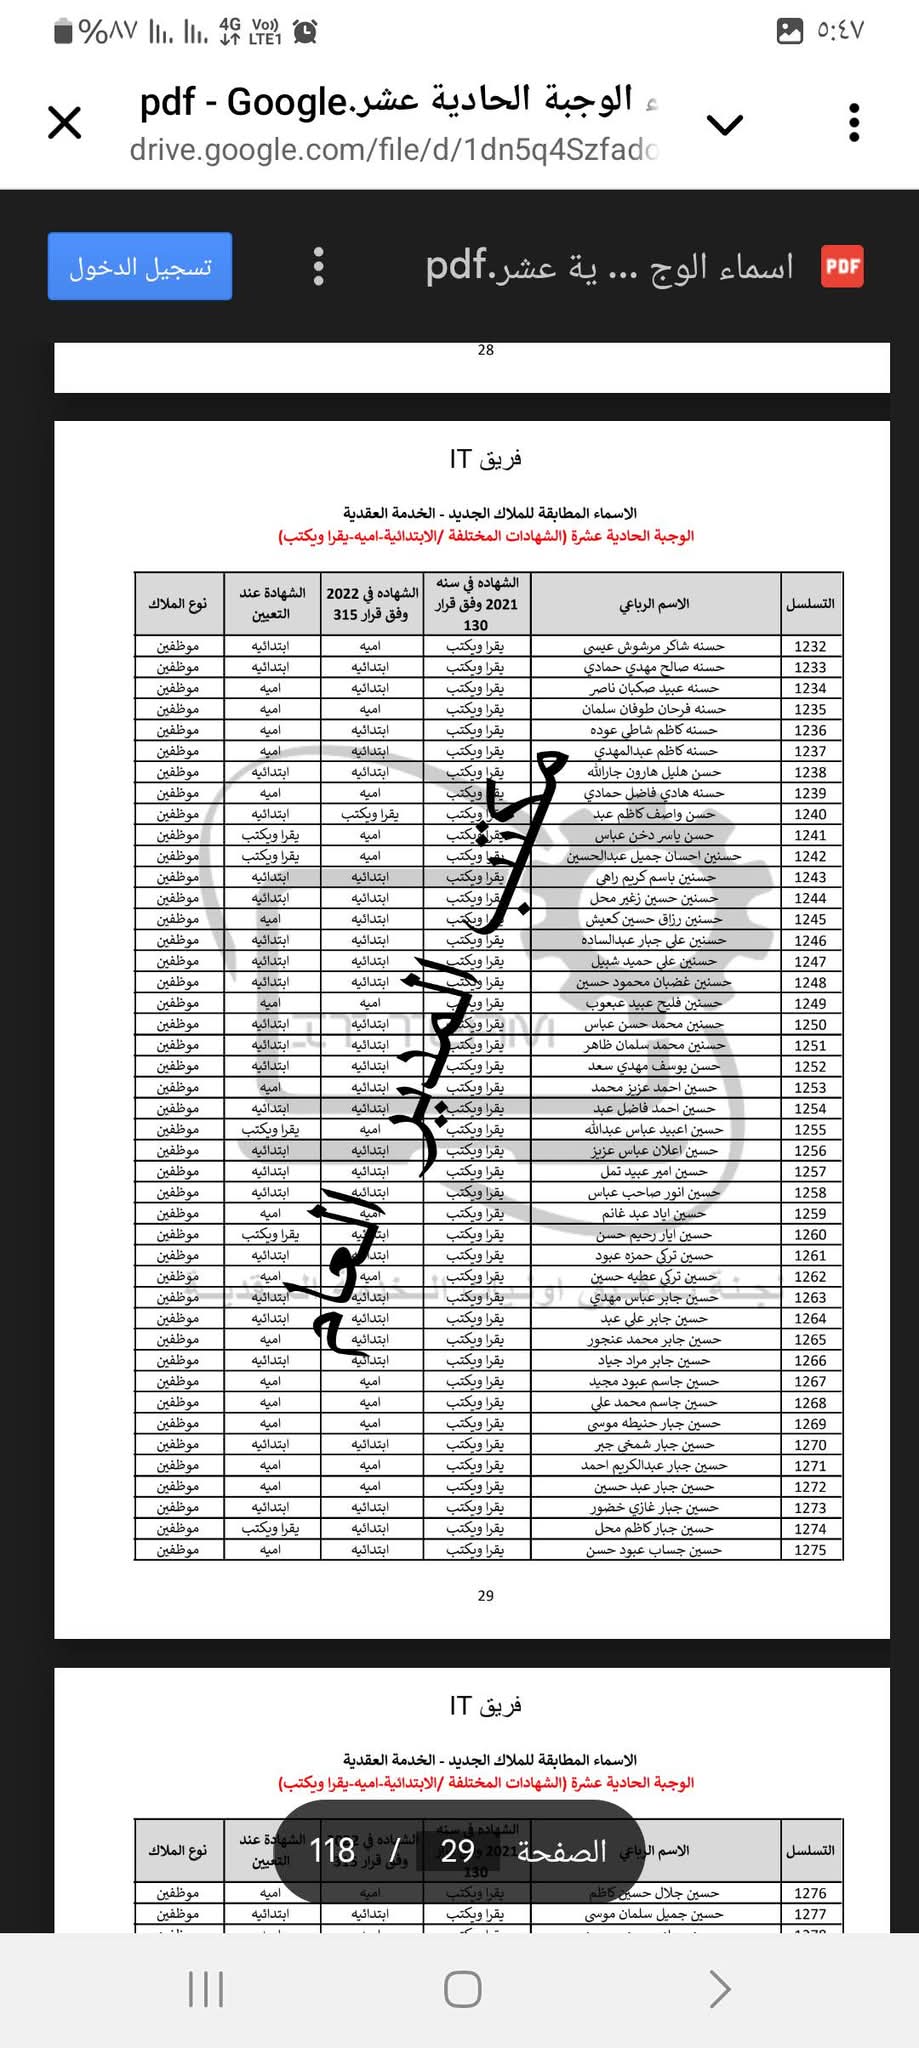 ٥:٤٧ 4G Vo)) LTE1 %٨٧
ء الوجبة الحادية عشر.pdf - Google
drive.google.com/file/d/1dn5q4Szfado
PDF اسماء الوج ... ية عشر.pdf تسجيل الدخول
28
فريق IT
الاسماء المطابقة للملاك الجديد - الخدمة العقدية
الوجبة الحادية عشرة (الشهادات المختلفة /الابتدائية-اميه-يقرا ويكتب)
التسلسل الاسم الرباعي الشهاده في سنه 2021 وفق قرار 130 الشهاده في 2022 وفق قرار 315 الشهادة عند التعيين نوع الملاك
1232 حسنه شاكر مرشوش عيسى يقرا ويكتب اميه ابتدائيه موظفين
1233 حسنه صالح مهدي حمادي يقرا ويكتب ابتدائيه ابتدائيه موظفين
1234 حسنه عبيد صكبان ناصر يقرا ويكتب ابتدائيه اميه موظفين
1235 حسنه فرحان طوفان سلمان يقرا ويكتب اميه اميه موظفين
1236 حسنه كاظم شاطي عوده يقرا ويكتب ابتدائيه اميه موظفين
1237 حسنه كاظم عبدالمهدي يقرا ويكتب ابتدائيه اميه موظفين
1238 حسن هليل هارون جارالله يقرا ويكتب ابتدائيه ابتدائيه موظفين
1239 حسنه هادي فاضل حمادي يقرا ويكتب اميه اميه موظفين
1240 حسن واصف كاظم عبد يقرا ويكتب يقرا ويكتب ابتدائيه موظفين
1241 حسن ياسر دخن عباس يقرا ويكتب اميه يقرا ويكتب موظفين
1242 حسنين احسان جميل عبدالحسين يقرا ويكتب اميه يقرا ويكتب موظفين
1243 حسنين باسم كريم راهي يقرا ويكتب ابتدائيه ابتدائيه موظفين
1244 حسنين حسين زغير محل يقرا ويكتب ابتدائيه ابتدائيه موظفين
1245 حسنين رزاق حسين كعيش يقرا ويكتب ابتدائيه اميه موظفين
1246 حسنين علي جبار عبدالساده يقرا ويكتب ابتدائيه ابتدائيه موظفين
1247 حسنين علي حميد شبيل يقرا ويكتب ابتدائيه ابتدائيه موظفين
1248 حسنين غضبان محمود حسين يقرا ويكتب ابتدائيه ابتدائيه موظفين
1249 حسنين فليح عبيد عبعوب يقرا ويكتب اميه اميه موظفين
1250 حسنين محمد حسن عباس يقرا ويكتب ابتدائيه ابتدائيه موظفين
1251 حسنين محمد سلمان ظاهر يقرا ويكتب ابتدائيه ابتدائيه موظفين
1252 حسن يوسف مهدي سعد يقرا ويكتب ابتدائيه ابتدائيه موظفين
1253 حسين احمد عزيز محمد يقرا ويكتب ابتدائيه اميه موظفين
1254 حسين احمد فاضل عبد يقرا ويكتب ابتدائيه ابتدائيه موظفين
1255 حسين اعبيد عباس عبدالله يقرا ويكتب اميه يقرا ويكتب موظفين
1256 حسين اعلان عباس عزيز يقرا ويكتب ابتدائيه ابتدائيه موظفين
1257 حسين امير عبيد ثمل يقرا ويكتب ابتدائيه ابتدائيه موظفين
1258 حسين انور صاحب عباس يقرا ويكتب ابتدائيه ابتدائيه موظفين
1259 حسين اياد عبد غانم يقرا ويكتب اميه اميه موظفين
1260 حسين ايار رحيم حسن يقرا ويكتب ابتدائيه يقرا ويكتب موظفين
1261 حسين تركي حمزه عبود يقرا ويكتب ابتدائيه ابتدائيه موظفين
1262 حسين تركي عطيه حسين يقرا ويكتب اميه اميه موظفين
1263 حسين جابر عباس مهدي يقرا ويكتب ابتدائيه ابتدائيه موظفين
1264 حسين جابر علي عبد يقرا ويكتب ابتدائيه ابتدائيه موظفين
1265 حسين جابر محمد عنجور يقرا ويكتب ابتدائيه اميه موظفين
1266 حسين جابر مراد جياد يقرا ويكتب ابتدائيه ابتدائيه موظفين
1267 حسين جاسم عبود مجيد يقرا ويكتب اميه اميه موظفين
1268 حسين جاسم محمد علي يقرا ويكتب اميه اميه موظفين
1269 حسين جبار حنيطه موسى يقرا ويكتب اميه اميه موظفين
1270 حسين جبار شمخي جبر يقرا ويكتب ابتدائيه ابتدائيه موظفين
1271 حسين جبار عبدالكريم احمد يقرا ويكتب اميه اميه موظفين
1272 حسين جبار عبد حسين يقرا ويكتب اميه اميه موظفين
1273 حسين جبار غازي خضور يقرا ويكتب ابتدائيه ابتدائيه موظفين
1274 حسين جبار كاظم محل يقرا ويكتب ابتدائيه يقرا ويكتب موظفين
1275 حسين جساب عبود حسن يقرا ويكتب ابتدائيه اميه موظفين
مكتب المدير العام
29
فريق IT
الاسماء المطابقة للملاك الجديد - الخدمة العقدية
الوجبة الحادية عشرة (الشهادات المختلفة /الابتدائية-اميه-يقرا ويكتب)
التسلسل الاسم الرباعي الشهاده في سنه 2021 130 الشهادة عند التعيين نوع الملاك
الصفحة 29 / 118
1276 حسين جلال حسين كاظم يقرا ويكتب اميه اميه موظفين
1277 حسين جميل سلمان موسى يقرا ويكتب ابتدائيه ابتدائيه موظفين